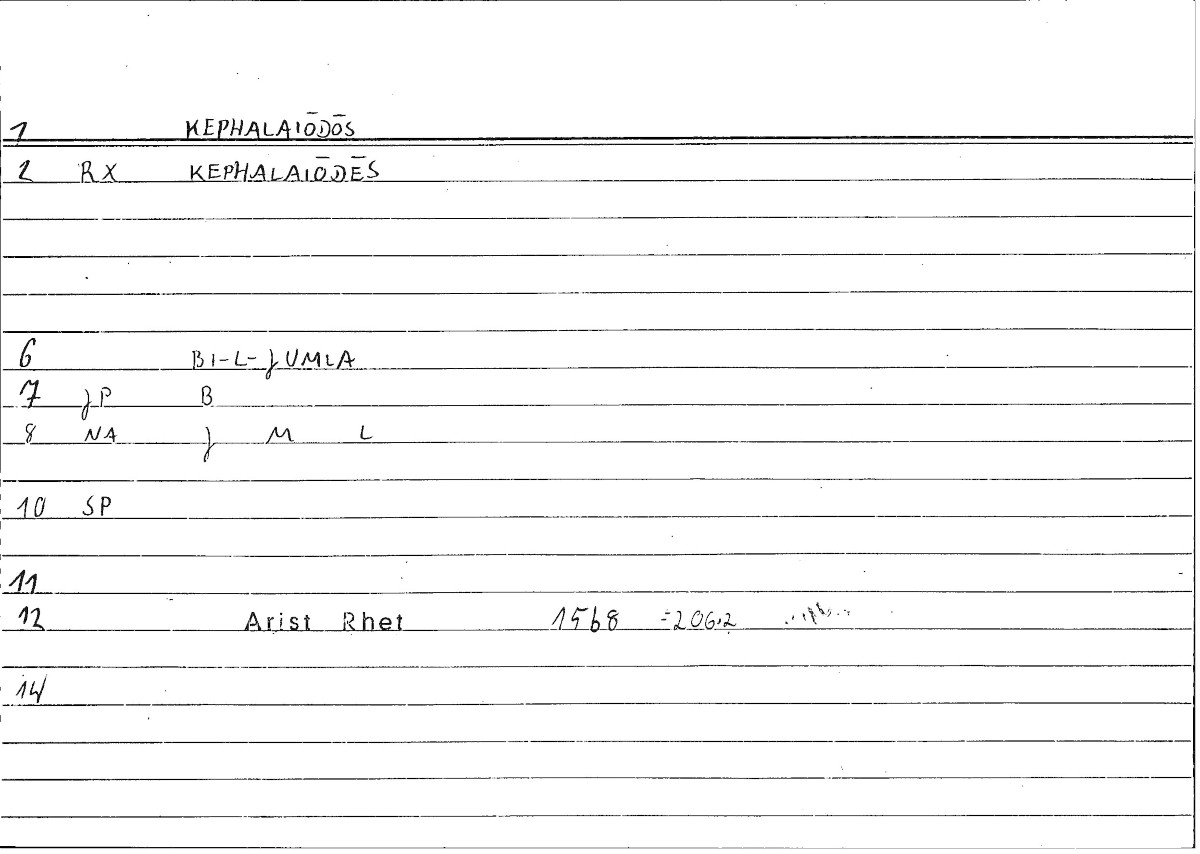 1 KEPHALAIŌDŌS
2 RX KEPHALAIŌDĒS
6 BI-L-JUMLA
7 JP B
8 NA J M L
10 SP
11
12 Arist Rhet 1568 =206,2
14